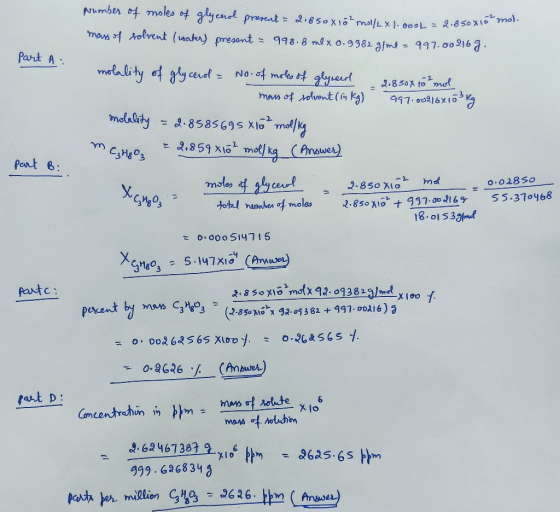 Number of moles of glycerol present = 2.850 x 10⁻² mol/L x 1.000L = 2.850 x 10⁻² mol.
mass of solvent (water) present = 998.8 ml x 0.9982 g/ml = 997.00216 g.
Part A:
molality of glycerol = No. of moles of glycerol / mass of solvent (in kg) = 2.850 x 10⁻² mol / 997.00216 x 10⁻³ kg
molality = 2.8585695 x 10⁻² mol/kg
m C₃H₈O₃ = 2.859 x 10⁻² mol/kg (Answer)
Part B:
X C₃H₈O₃ = moles of glycerol / total number of moles = 2.850 x 10⁻² mol / 2.850 x 10⁻² + 997.00216g / 18.0153g/mol = 0.02850 / 55.370468
= 0.000514715
X C₃H₈O₃ = 5.147 x 10⁻⁴ (Answer)
Part C:
percent by mass C₃H₈O₃ = 2.850 x 10⁻² mol x 92.09382 g/mol / (2.850 x 10⁻² x 92.09382 + 997.00216) g x 100 %
= 0.00262565 x 100 %. = 0.262565 %.
= 0.2626 %. (Answer)
Part D:
Concentration in ppm = mass of solute / mass of solution x 10⁶
= 2.62467387 g / 999.626834 g x 10⁶ ppm = 2625.65 ppm
parts per million C₃H₈O₃ = 2626. ppm (Answer)